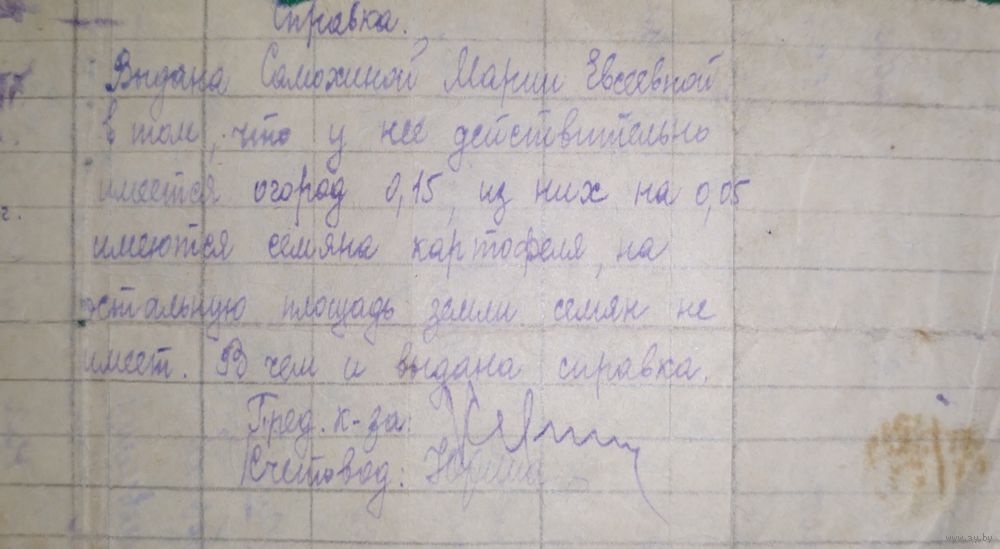 Справка.
Выдана Самохиной Марии Евсеевной
в том, что у нее действительно
имеется огород 0,15, из них на 0,05
имеются семяна картофеля, на
остальную площадь земли семян не
имеет. В чем и выдана справка.
Пред. к-за:
Счетовод:
www.ay.by